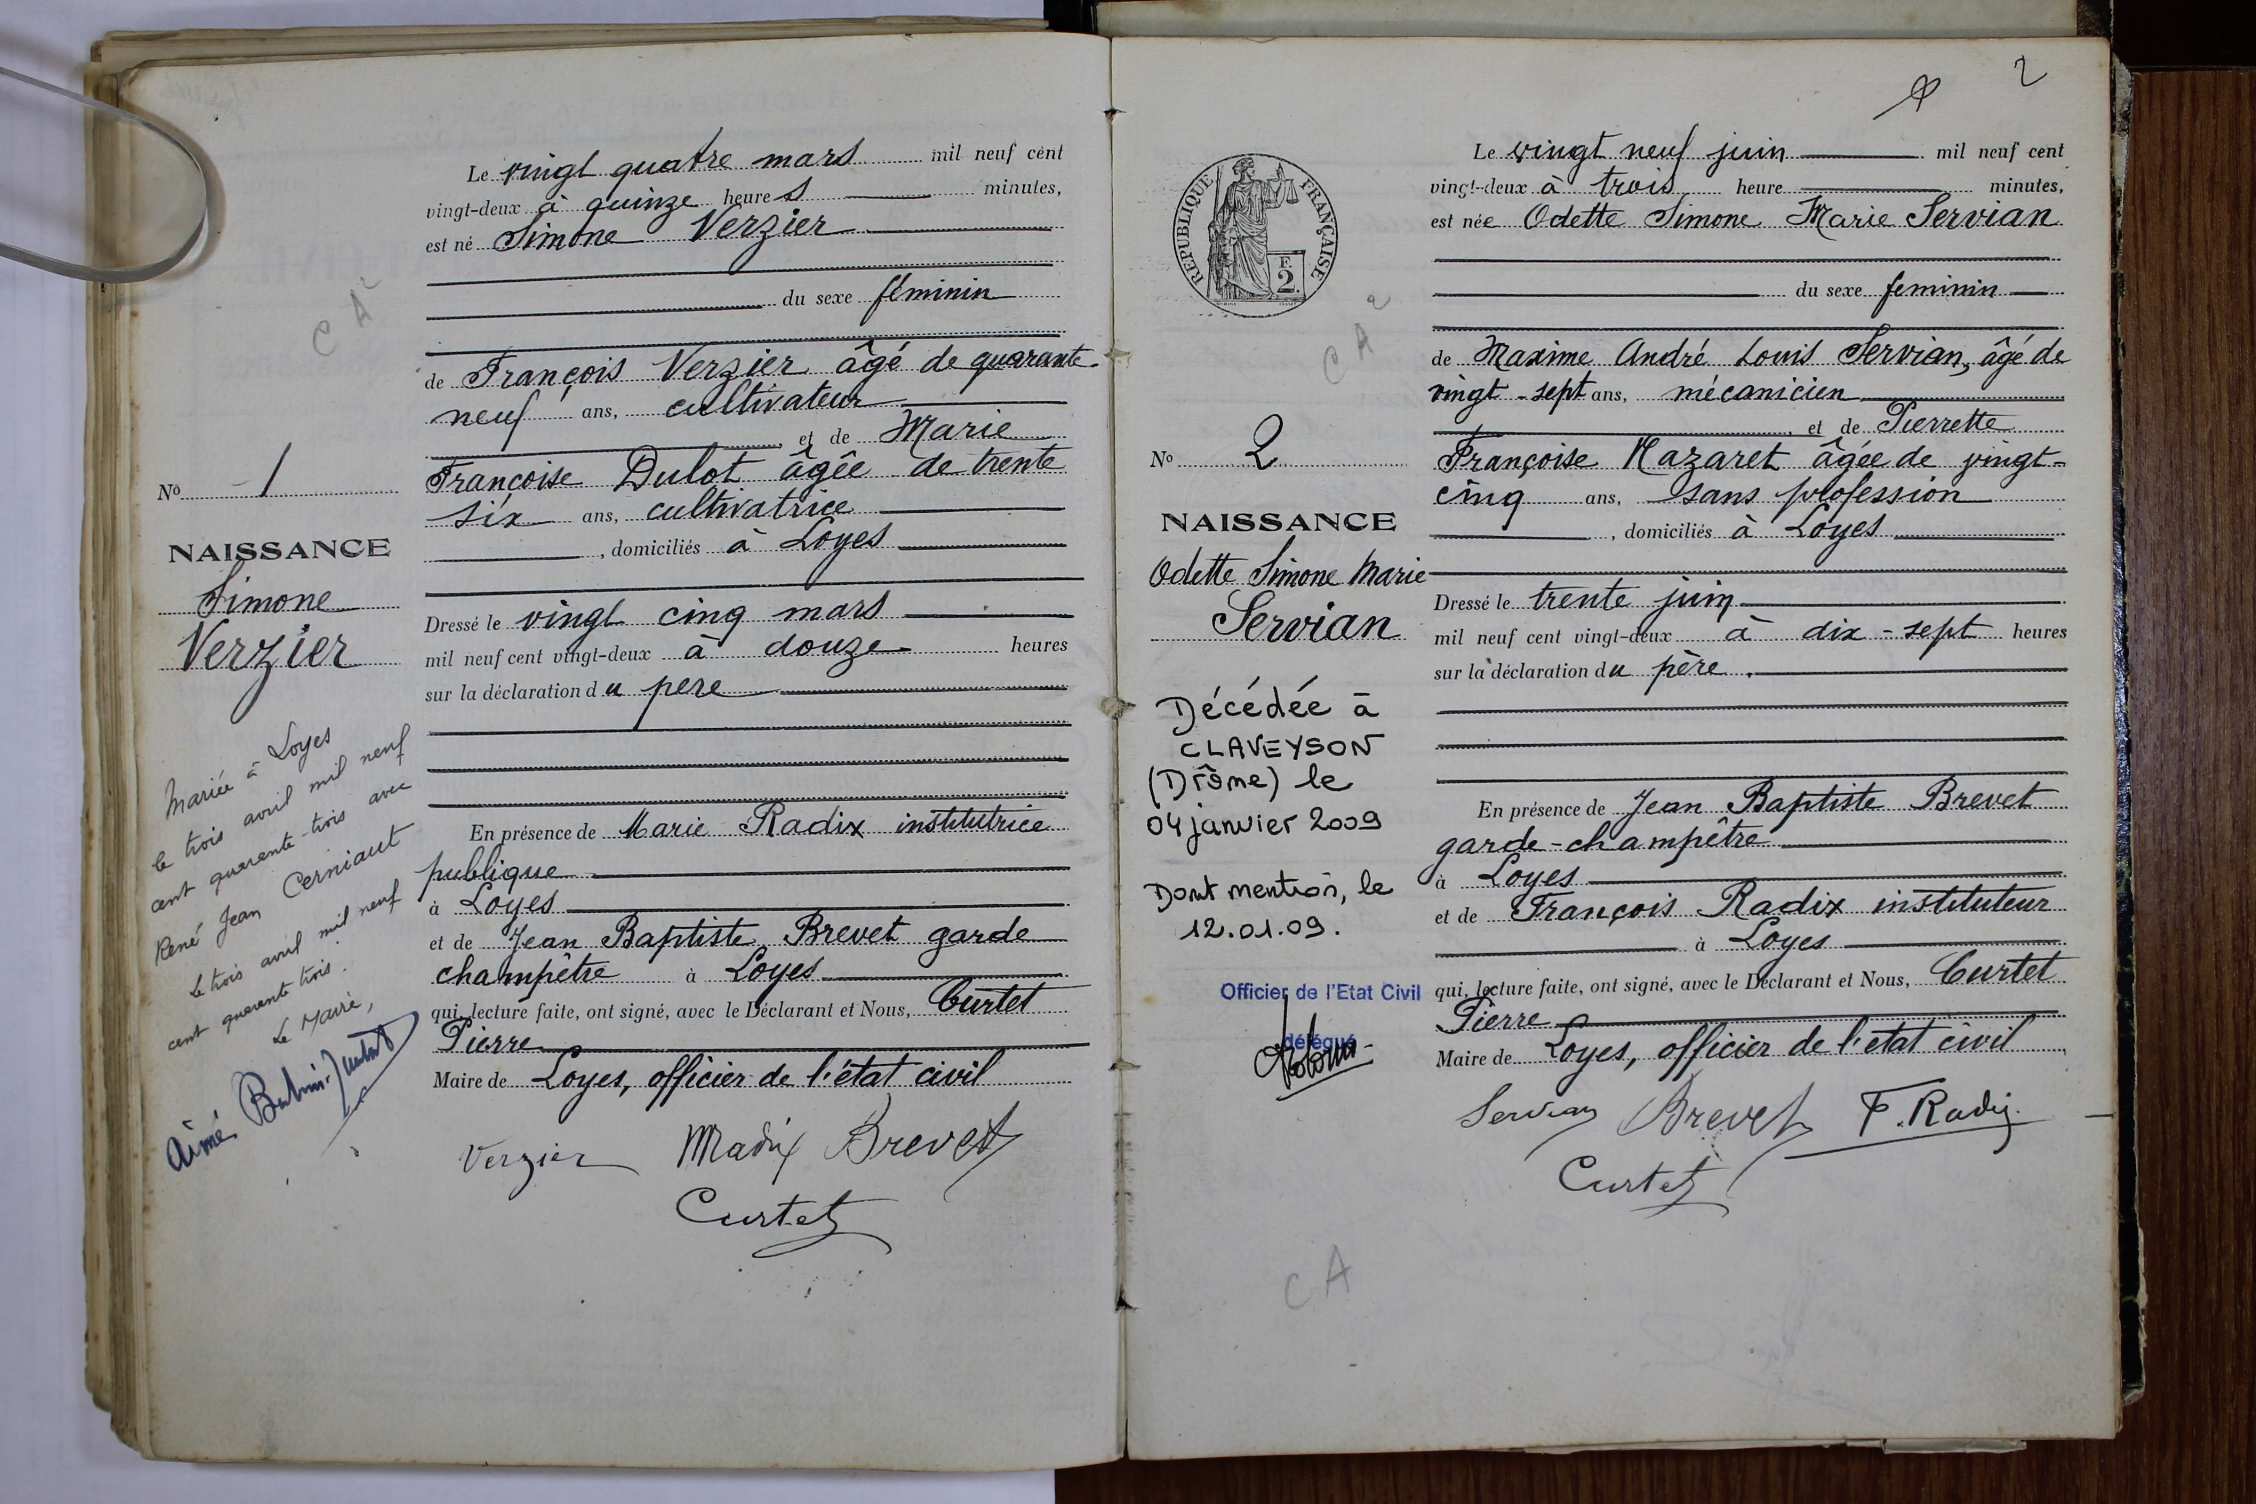 Le vingt quatre mars mil neuf cent
vingt-deux à quinze heures minutes,
est né Simone Verzier
du sexe féminin
de François Verzier âgé de quarante
neuf ans, cultivateur
et de Marie
Françoise Dulot âgêe de trente
six ans, cultivatrice
, domiciliés à Loyes
Dressé le vingt cinq mars
mil neuf cent vingt-deux à douze heures
sur la déclaration du pere
En présence de Marie Radix institutrice
publique
à Loyes
et de Jean Baptiste Brevet garde
champêtre à Loyes
qui, lecture faite, ont signé, avec le Déclarant et Nous, Curtet
Pierre
Maire de Loyes, officier de l'état civil
Verzier MRadix Brevet
Curtet
C A 2
No 1
NAISSANCE
Simone
Verzier
Mariée à Loyes
le trois avril mil neuf
cent quarente-trois avec
René Jean Cerniaut
Le trois avril mil neuf
cent quarente trois.
Le Maire,
Aimé
2
REPUBLIQUE FRANÇAISE
F.
2.
C A 2
Le vingt neuf juin mil neuf cent
vingt-deux à trois heure minutes,
est née Odette Simone Marie Servian
du sexe feminin
de Maxime André Louis Servian, âgé de
vingt-sept ans, mécanicien
, et de Pierrette
Françoise Nazaret âgée de vingt-
cinq ans, sans profession
, domiciliés à Loyes
Dressé le trente juin
mil neuf cent vingt-deux à dix-sept heures
sur la déclaration du père.
En présence de Jean Baptiste Brevet
garde-champêtre
à Loyes
et de François Radix instituteur
à Loyes
qui, lecture faite, ont signé, avec le Déclarant et Nous, Curtet
Pierre
Maire de Loyes, officier de l'état civil
Servian Brevet F. Radix
Curtet
No 2
NAISSANCE
Odette Simone Marie
Servian
Décédée à
CLAVEYSON
(Drôme) le
04 janvier 2009
Dont mention, le
12.01.09.
Officier de l'Etat Civil
délégué
C A